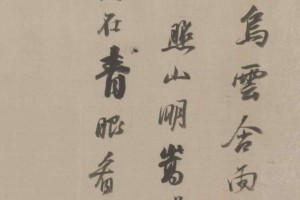 烏雲含雨
照山明嵩
在青眼看